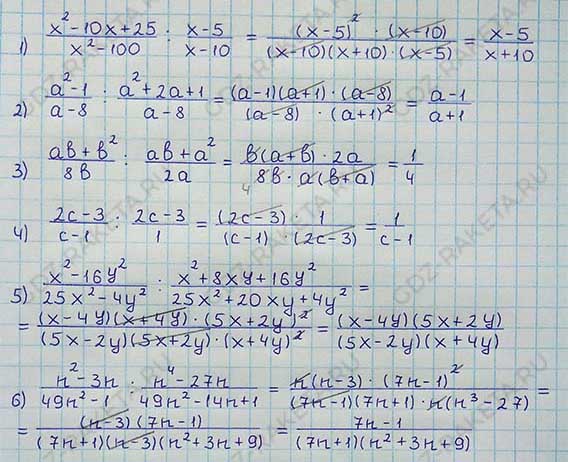 1) (x²-10x+25)/(x²-100) : (x-5)/(x-10) = ((x-5)²·(x-10))/((x-10)(x+10)·(x-5)) = (x-5)/(x+10)
2) (a²-1)/(a-8) : (a²+2a+1)/(a-8) = ((a-1)(a+1)·(a-8))/((a-8)·(a+1)²) = (a-1)/(a+1)
3) (ав+в²)/(8в) : (ав+а²)/(2а) = (в(а+в)·2а)/(8в·а(в+а)) = 1/4
4
4) (2c-3)/(c-1) : (2c-3)/1 = ((2c-3)·1)/((c-1)·(2c-3)) = 1/(c-1)
5) (x²-16y²)/(25x²-4y²) : (x²+8xy+16y²)/(25x²+20xy+4y²) =
= ((x-4y)(x+4y)·(5x+2y)²)/((5x-2y)(5x+2y)·(x+4y)²) = ((x-4y)(5x+2y))/((5x-2y)(x+4y))
6) (n²-3n)/(49n²-1) : (n⁴-27n)/(49n²-14n+1) = (n(n-3)·(7n-1)²)/((7n-1)(7n+1)·n(n³-27)) =
= ((n-3)(7n-1))/((7n+1)(n-3)(n²+3n+9)) = (7n-1)/((7n+1)(n²+3n+9))
GDZ-RAKETA.RU